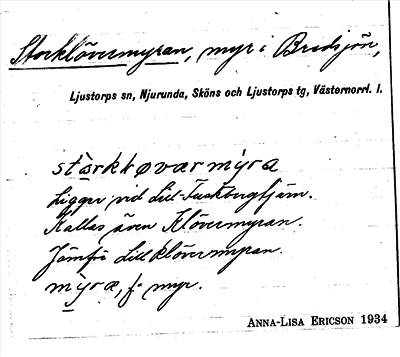 Storklövermyran, myr i Bredsjön,
Ljustorps sn, Njurunda, Sköns och Ljustorps tg, Västernorrl. l.
Ligger vid Lill-Tuskbergtjärn.
Kallas även Klövermyran.
Jämför Lillklövermyran.
myra, f. myr.
ANNA-LISA ERICSON 1934